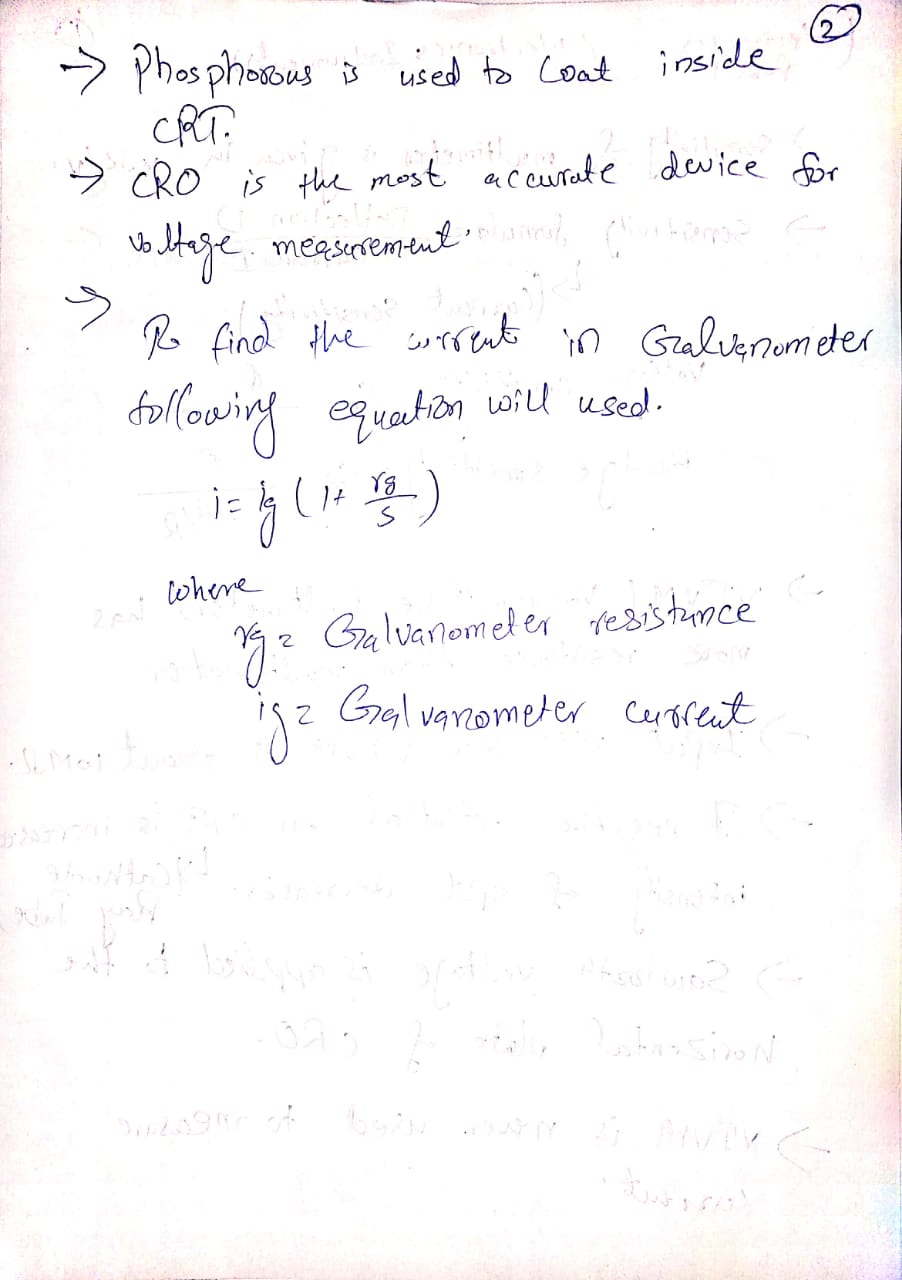 2
→ Phosphorous is used to Coat inside
CRT.
→ CRO is the most accurate device for
voltage measurement.
→
To find the current in Galvanometer
following equation will used.
i = ig (1+ rg/s)
where
rg = Galvanometer resistance
ig = Galvanometer current